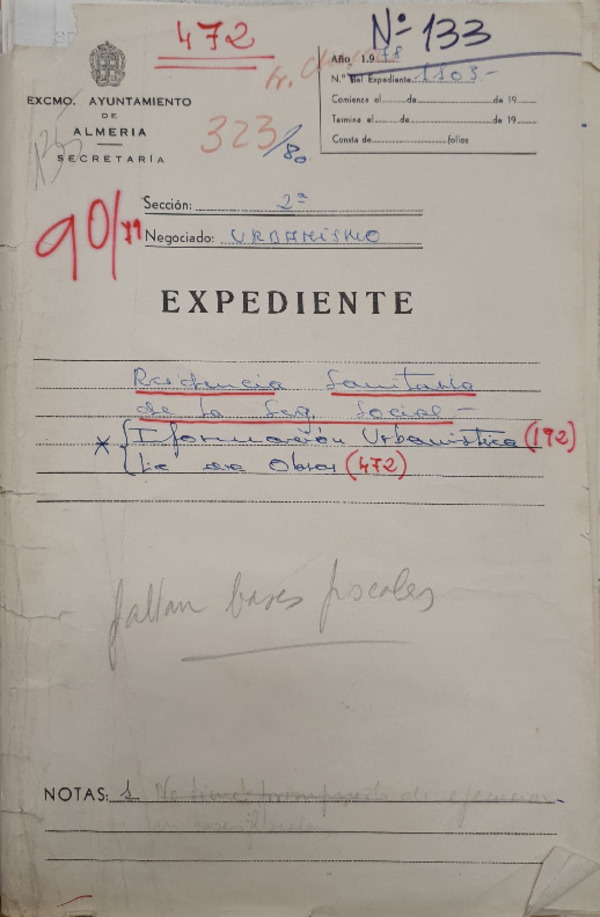 472
Nº 133
Año, 1.978
N.º del Expediente 1803-
Comienza el de de 19
Termina el de de 19
Consta de folios
EXCMO. AYUNTAMIENTO
DE
ALMERIA
SECRETARÍA
323/80
90/79
Sección: 2ª
Negociado: URBANISMO
EXPEDIENTE
Residencia Sanitaria
de la Seg. Social -
* Iformación Urbanistica (192)
Lic de Obras (472)
faltan bases fiscales
NOTAS: 1 No tiene de ejecucion